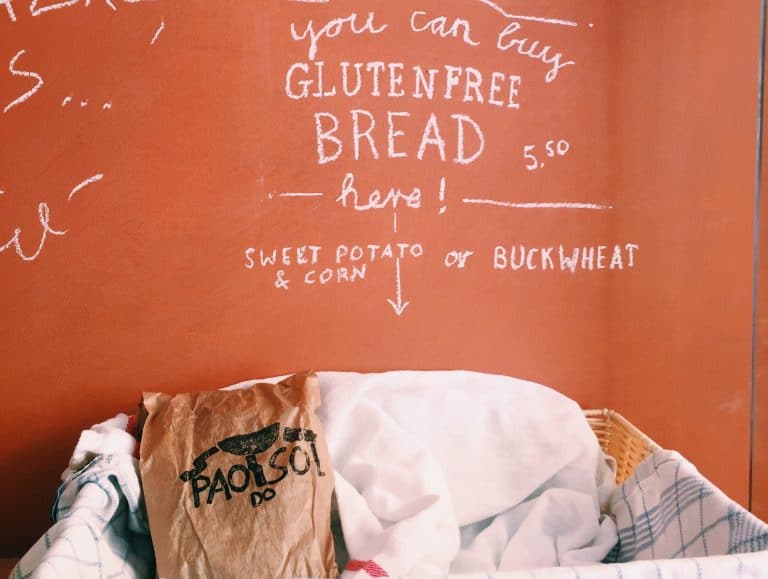 you can buy
GLUTENFREE
BREAD 5.50
here!
SWEET POTATO or BUCKWHEAT
& CORN
PAO DO SOL